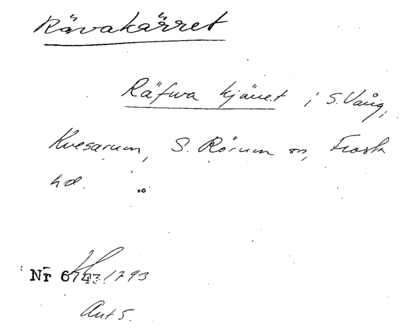 Rävakärret
Räfwa kjäuet i S. Vång,
Kvesarum, S. Rörum sn, Frosta
hd.
Nr 6743/1793
Aut 5.